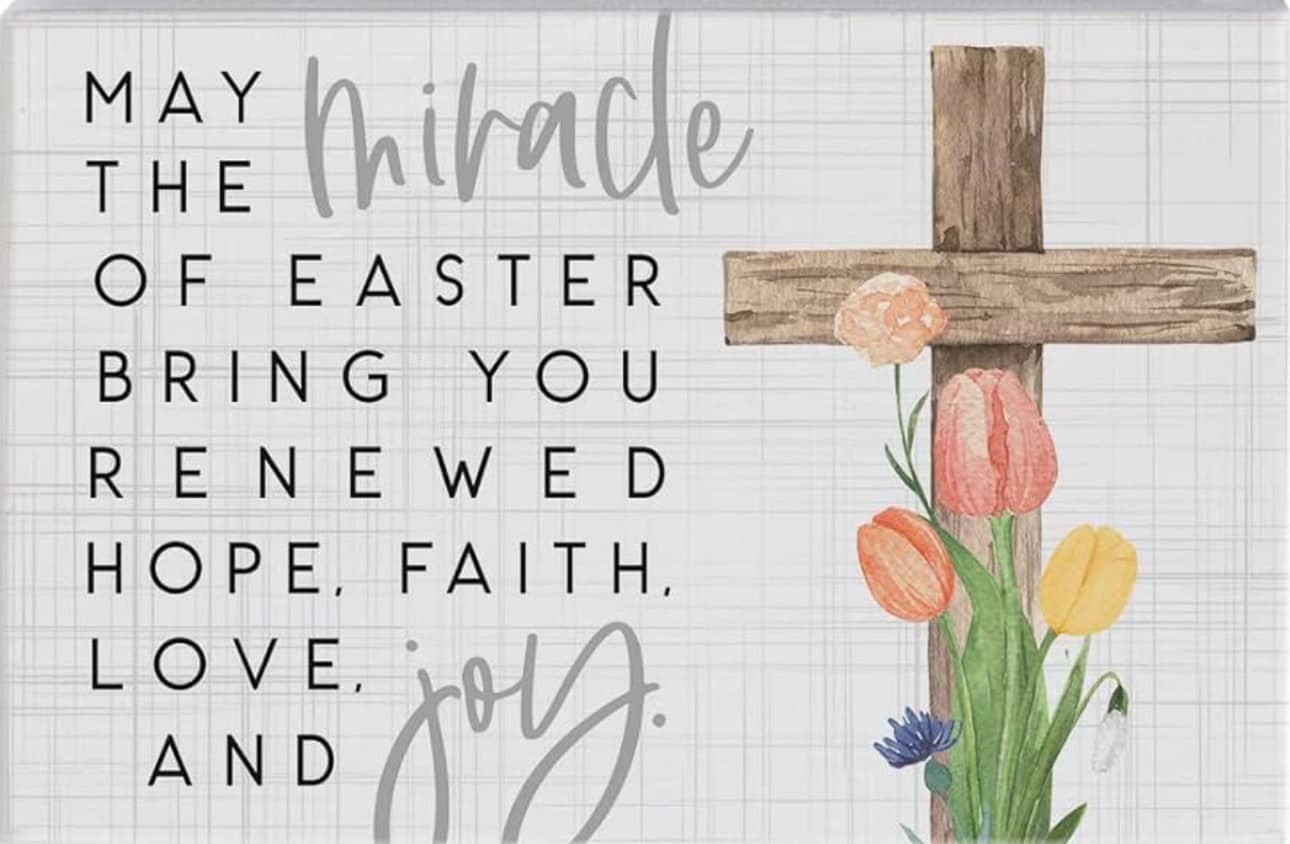 MAY miracle
THE
OF EASTER
BRING YOU
RENEWED
HOPE, FAITH,
LOVE, joy.
AND